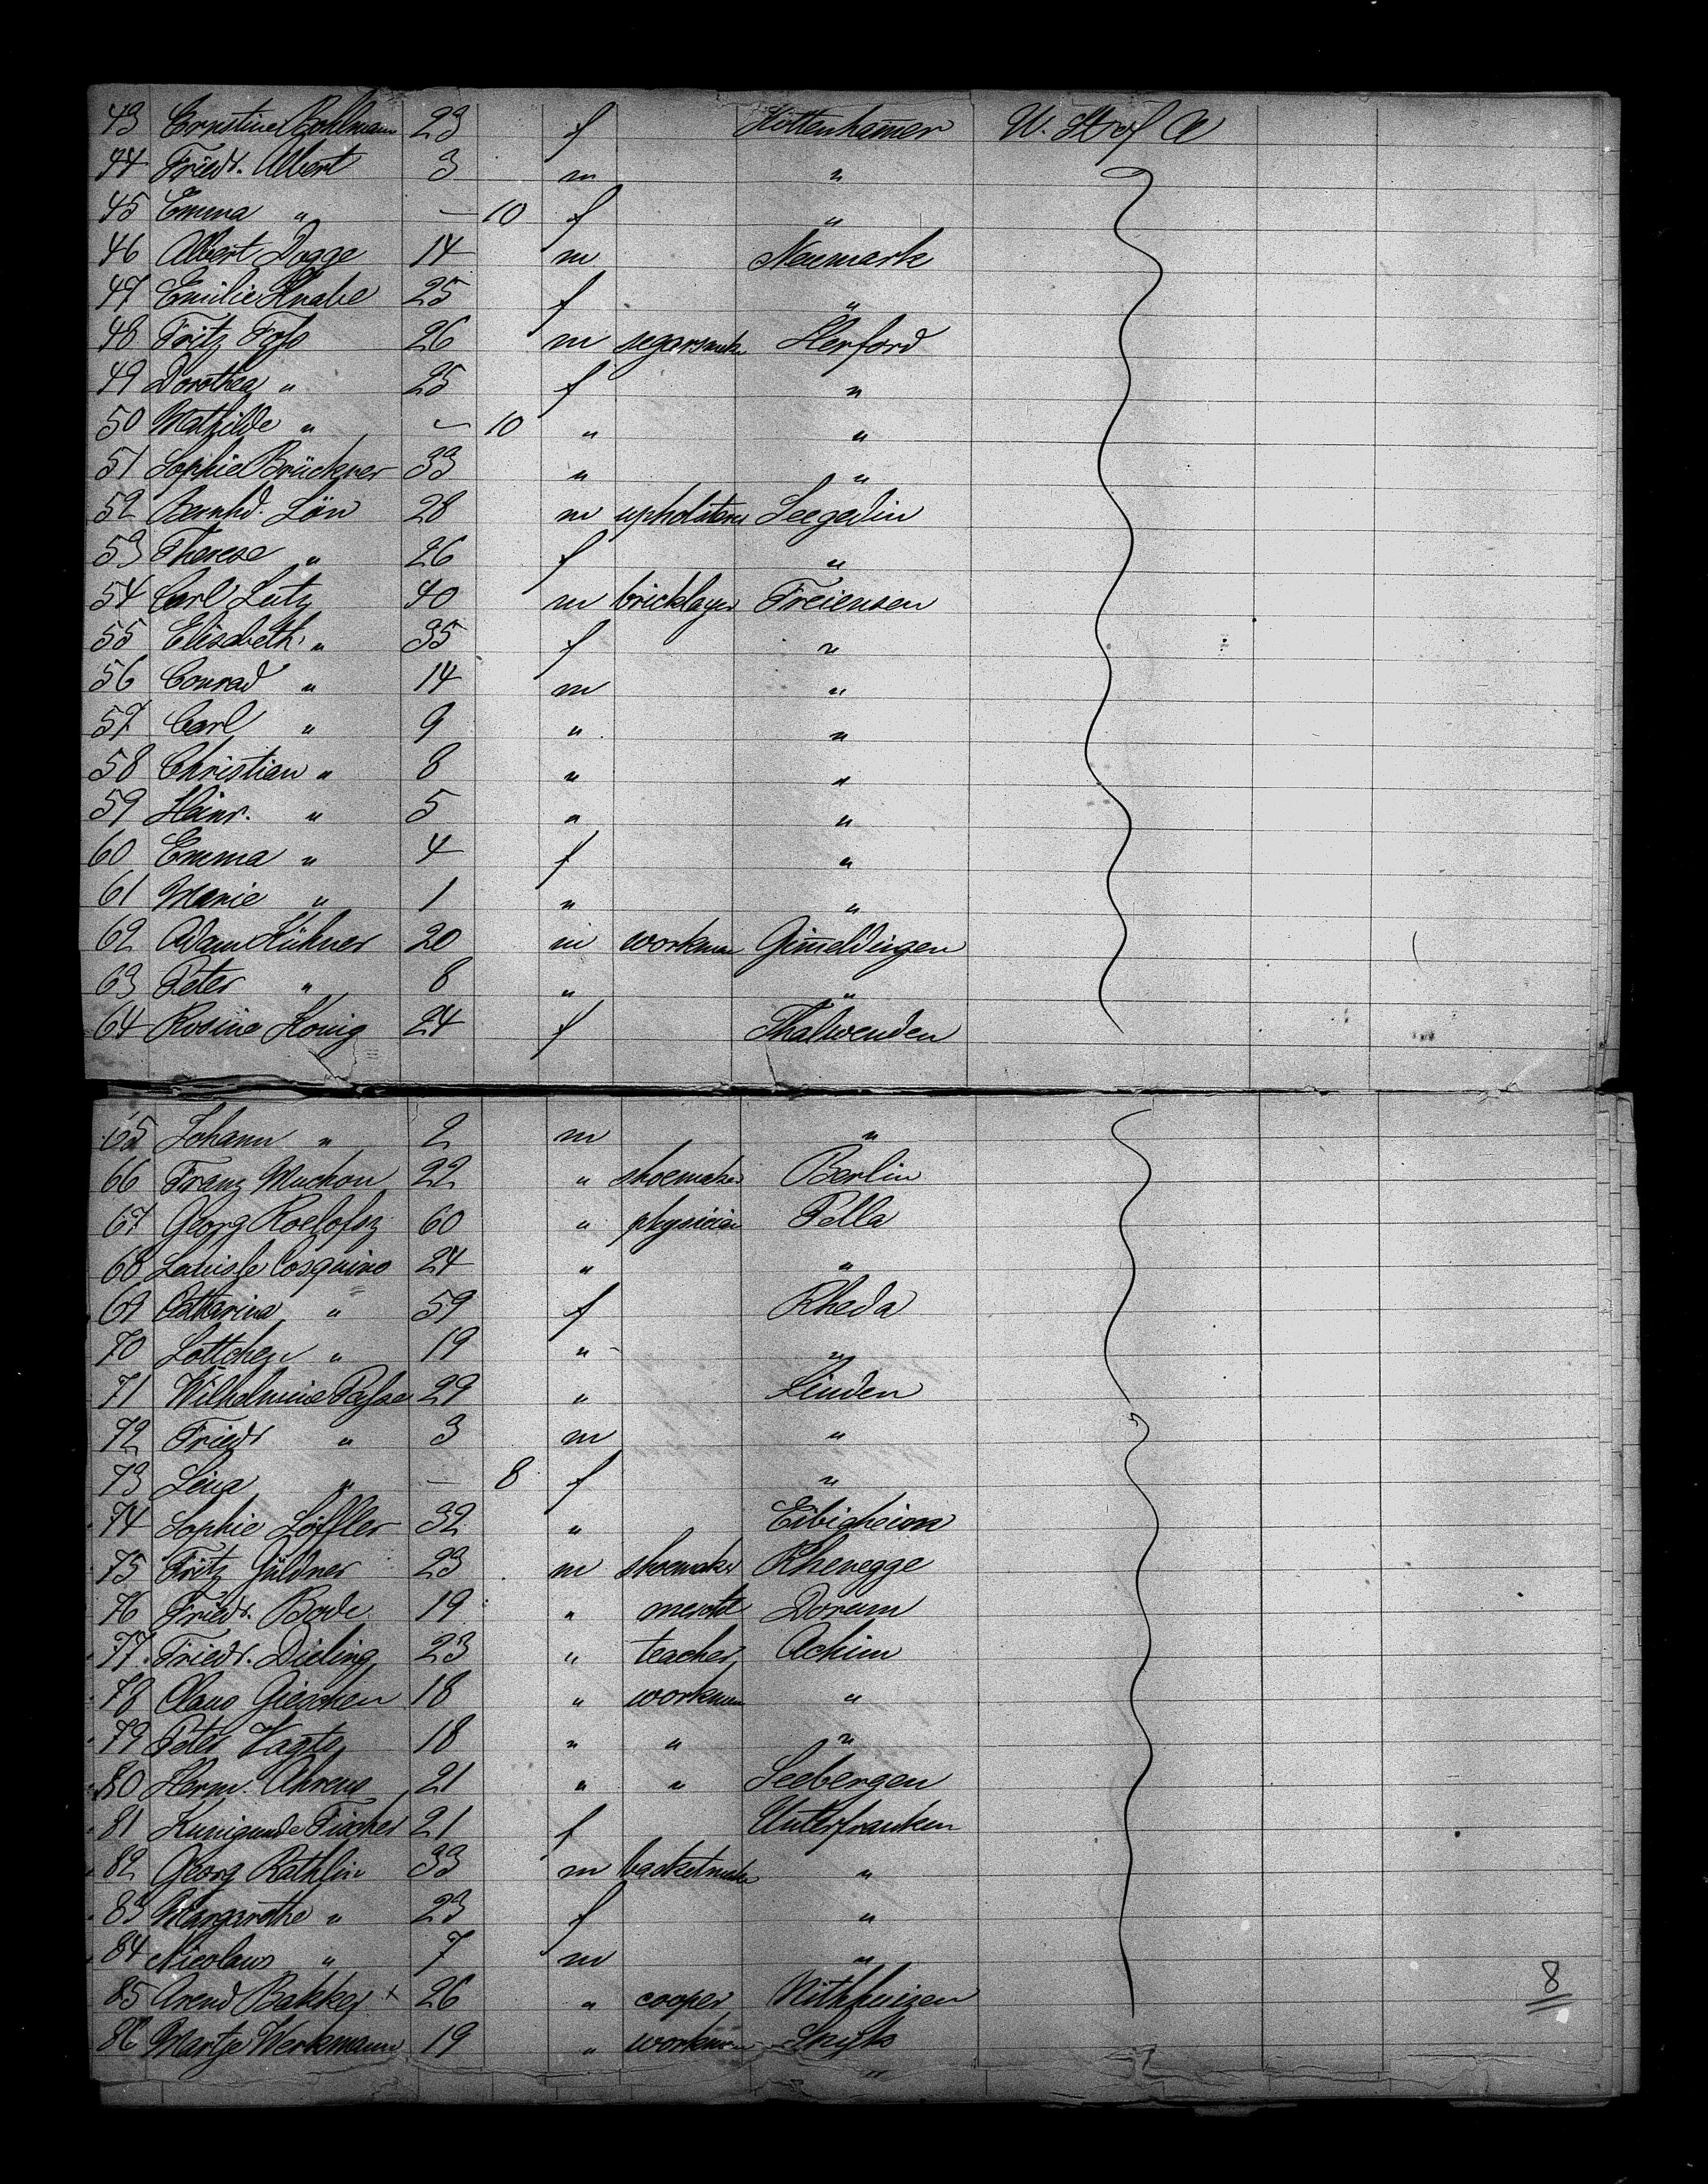 43 Ernstine Bohlmann 23 f Hüttenhammer U. St of A
44 Friedr. Albert 3 m "
45 Emma " — 10 f "
46 Albert Dogge 14 m Neumark
47 Emilie Knabe 25 f "
48 Fritz Foss 26 m segarmaker Herford
49 Dorothea " 25 f "
50 Mathilde " — 10 " "
51 Sophie Brückner 33 " "
52 Bernhd. Lön 28 m upholsterer Seegedin
53 Therese " 26 f "
54 Carl Lutz 40 m bricklayer Freiensen
55 Elisabeth " 35 f "
56 Conrad " 14 m "
57 Carl " 9 " "
58 Christian " 8 " "
59 Heinr. " 5 " "
60 Emma " 4 f "
61 Marie " 1 " "
62 Adam Hühner 20 m workman Gimeldingen
63 Peter " 8 " "
64 Rosine König 24 f Thalwenden
65 Johann " 2 m "
66 Franz Muchon 22 " shoemaker Berlin
67 Georg Roelofsz 60 " physician Pella
68 Cosquino 24 " "
69 Catharina " 59 f Rheda
70 Lottchen " 19 " "
71 Wilhelmine 29 " Linden
72 Friedr " 3 m "
73 Lina " — 8 f "
74 Sophie Löffler 32 " Eibigheim
75 Fritz Güldner 23 m shoemaker Rhenegge
76 Friedr. Bode 19 " Dorum
77 Friedr. Dieling 23 " teacher Achim
78 Claus Gieschen 18 " workman "
79 Peter Vagts 18 " " "
80 Herm. Ahrens 21 " " Seebergen
81 Kunigunde Fischer 21 f Unterfranken
82 Georg Rathlin 33 m basketmaker "
83 Margarethe " 23 f "
84 Nicolaus " 7 m "
85 Arend Bakker x 26 " cooper Uithuizen
8
86 Martje Werkmann 19 " workman
"